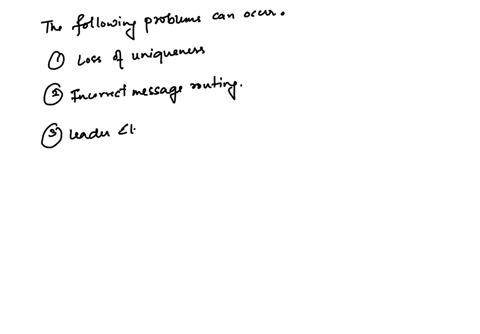 The following problems can occur.
① Loss of uniqueness
② Incorrect message routing.
③ Leader El